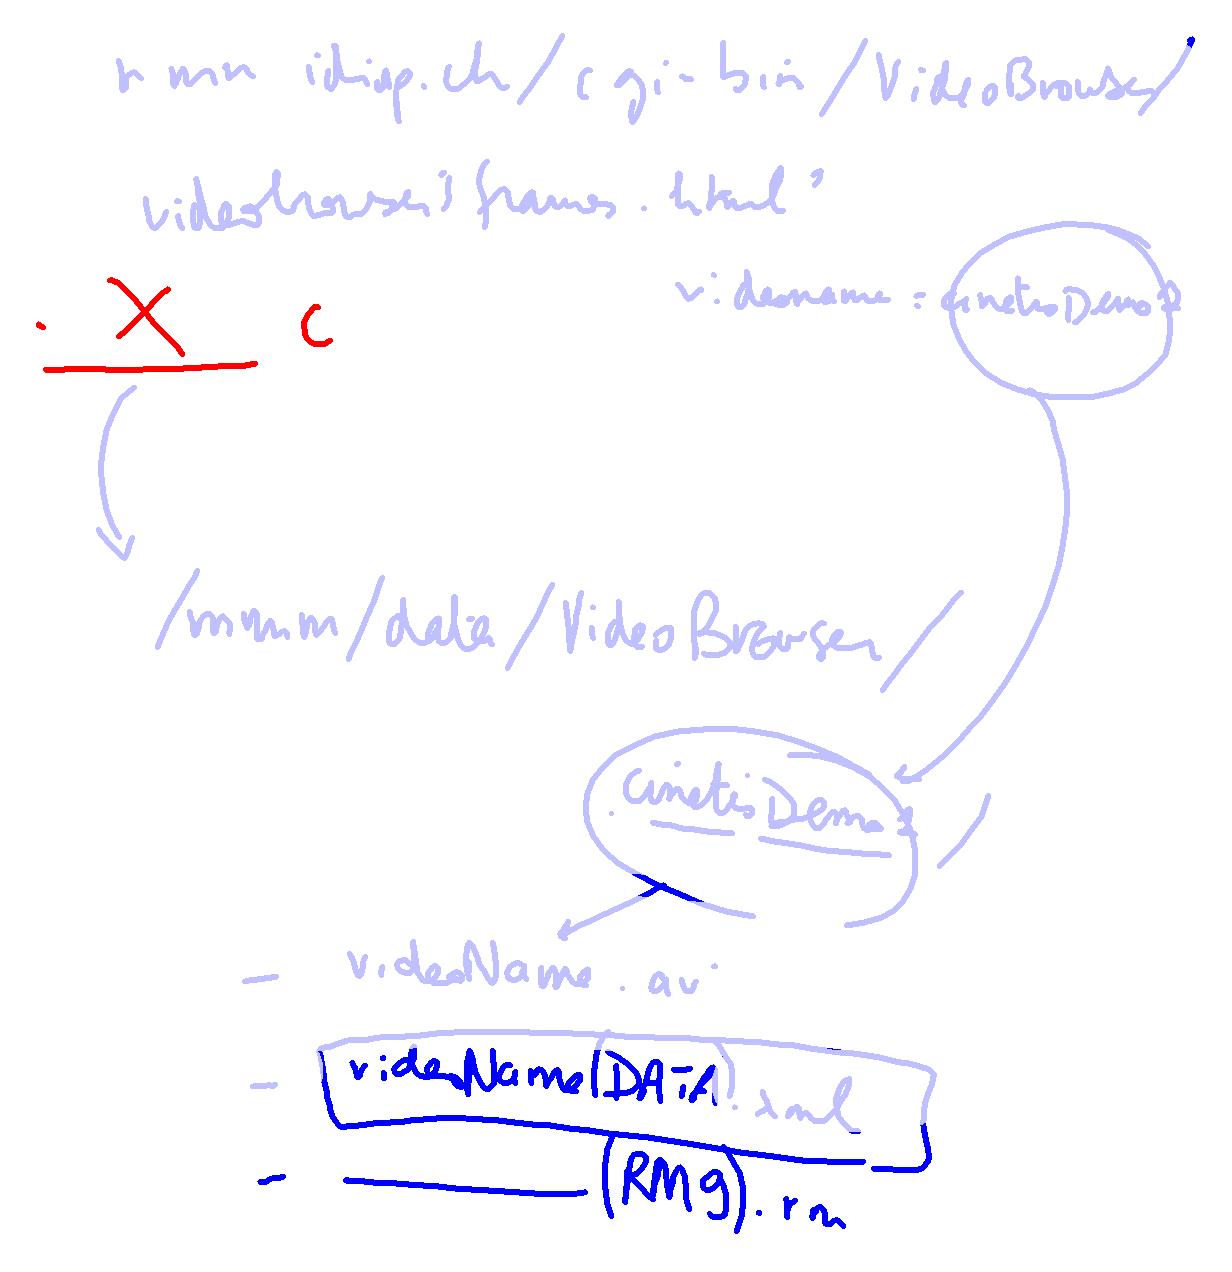 mmm idiap.ch/cgi-bin/VideoBrowser/
videobrowser3frames.html?
videoname = cinetisDemo2
X C
/mmm/data/VideoBrowser/
cinetisDemo2/
- videoName.avi
- videoName(DATA).xml
- ______(RM9).rm